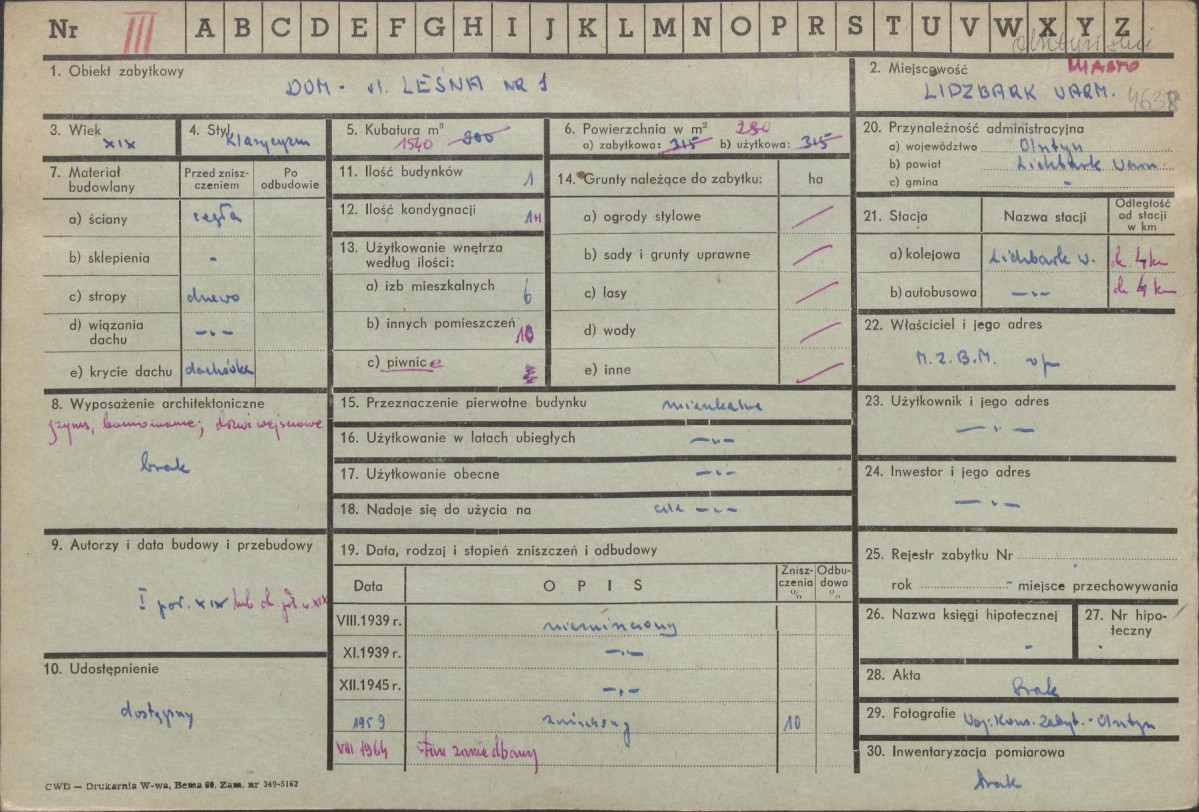 Nr III A B C D E F G H I J K L M N O P R S T U V W X Y Z
1. Obiekt zabytkowy
DOM - ul. LEŚNA NR 1
2. Miejscowość
MIASTO
LIDZBARK WARM. 4638
3. Wiek
XIX
4. Styl
Klasycyzm
5. Kubatura m³
1540 800
6. Powierzchnia w m² 280
a) zabytkowa: 315 b) użytkowa: 315
20. Przynależność administracyjna
a) województwo Olsztyn
b) powiat Lidzbark Warm.
c) gmina -
7. Materiał budowlany
Przed zniszczeniem
Po odbudowie
a) ściany cegła
b) sklepienia -
c) stropy drewno
d) wiązania dachu -„-
e) krycie dachu dachówka
11. Ilość budynków 1
12. Ilość kondygnacji 1+1
13. Użytkowanie wnętrza
według ilości:
a) izb mieszkalnych 6
b) innych pomieszczeń 10
c) piwnice
14. Grunty należące do zabytku: ha
a) ogrody stylowe
b) sady i grunty uprawne
c) lasy
d) wody
e) inne
21. Stacja Nazwa stacji Odległość od stacji w km
a) kolejowa Lidzbark W. ok. 4 km
b) autobusowa -„- ok 4 km
22. Właściciel i jego adres
M.Z.B.M. w/m
8. Wyposażenie architektoniczne
gzyms, boniowanie; drzwi wejściowe
brak
15. Przeznaczenie pierwotne budynku mieszkalne
16. Użytkowanie w latach ubiegłych -„-
17. Użytkowanie obecne -„-
18. Nadaje się do użycia na cele -„-
23. Użytkownik i jego adres
-„-
24. Inwestor i jego adres
-„-
9. Autorzy i data budowy i przebudowy
I poł. XIX lub ok. poł. w. XIX
10. Udostępnienie
dostępny
19. Data, rodzaj i stopień zniszczeń i odbudowy
Data OPIS Zniszczenia % Odbudowa %
VIII.1939 r. niezniszczony
XI.1939 r. -„-
XII.1945 r. -„-
1959 zniszczony 10
VIII 1964 Stan zaniedbany
25. Rejestr zabytku Nr
rok - miejsce przechowywania
26. Nazwa księgi hipotecznej
-
27. Nr hipoteczny
-
28. Akta
brak
29. Fotografie Woj. Kons. Zabyt. - Olsztyn
30. Inwentaryzacja pomiarowa
brak
CWD — Drukarnia W-wa, Bema 60. Zam. nr 349-5162